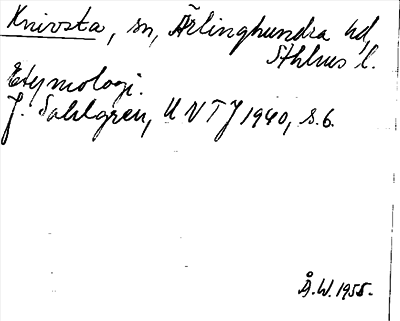 Knivsta, sn, Ärlinghundra hd,
Sthlms l.
Etymologi.
J. Sahlgren, UNTJ 1940, s. 6.
Å.W. 1955.